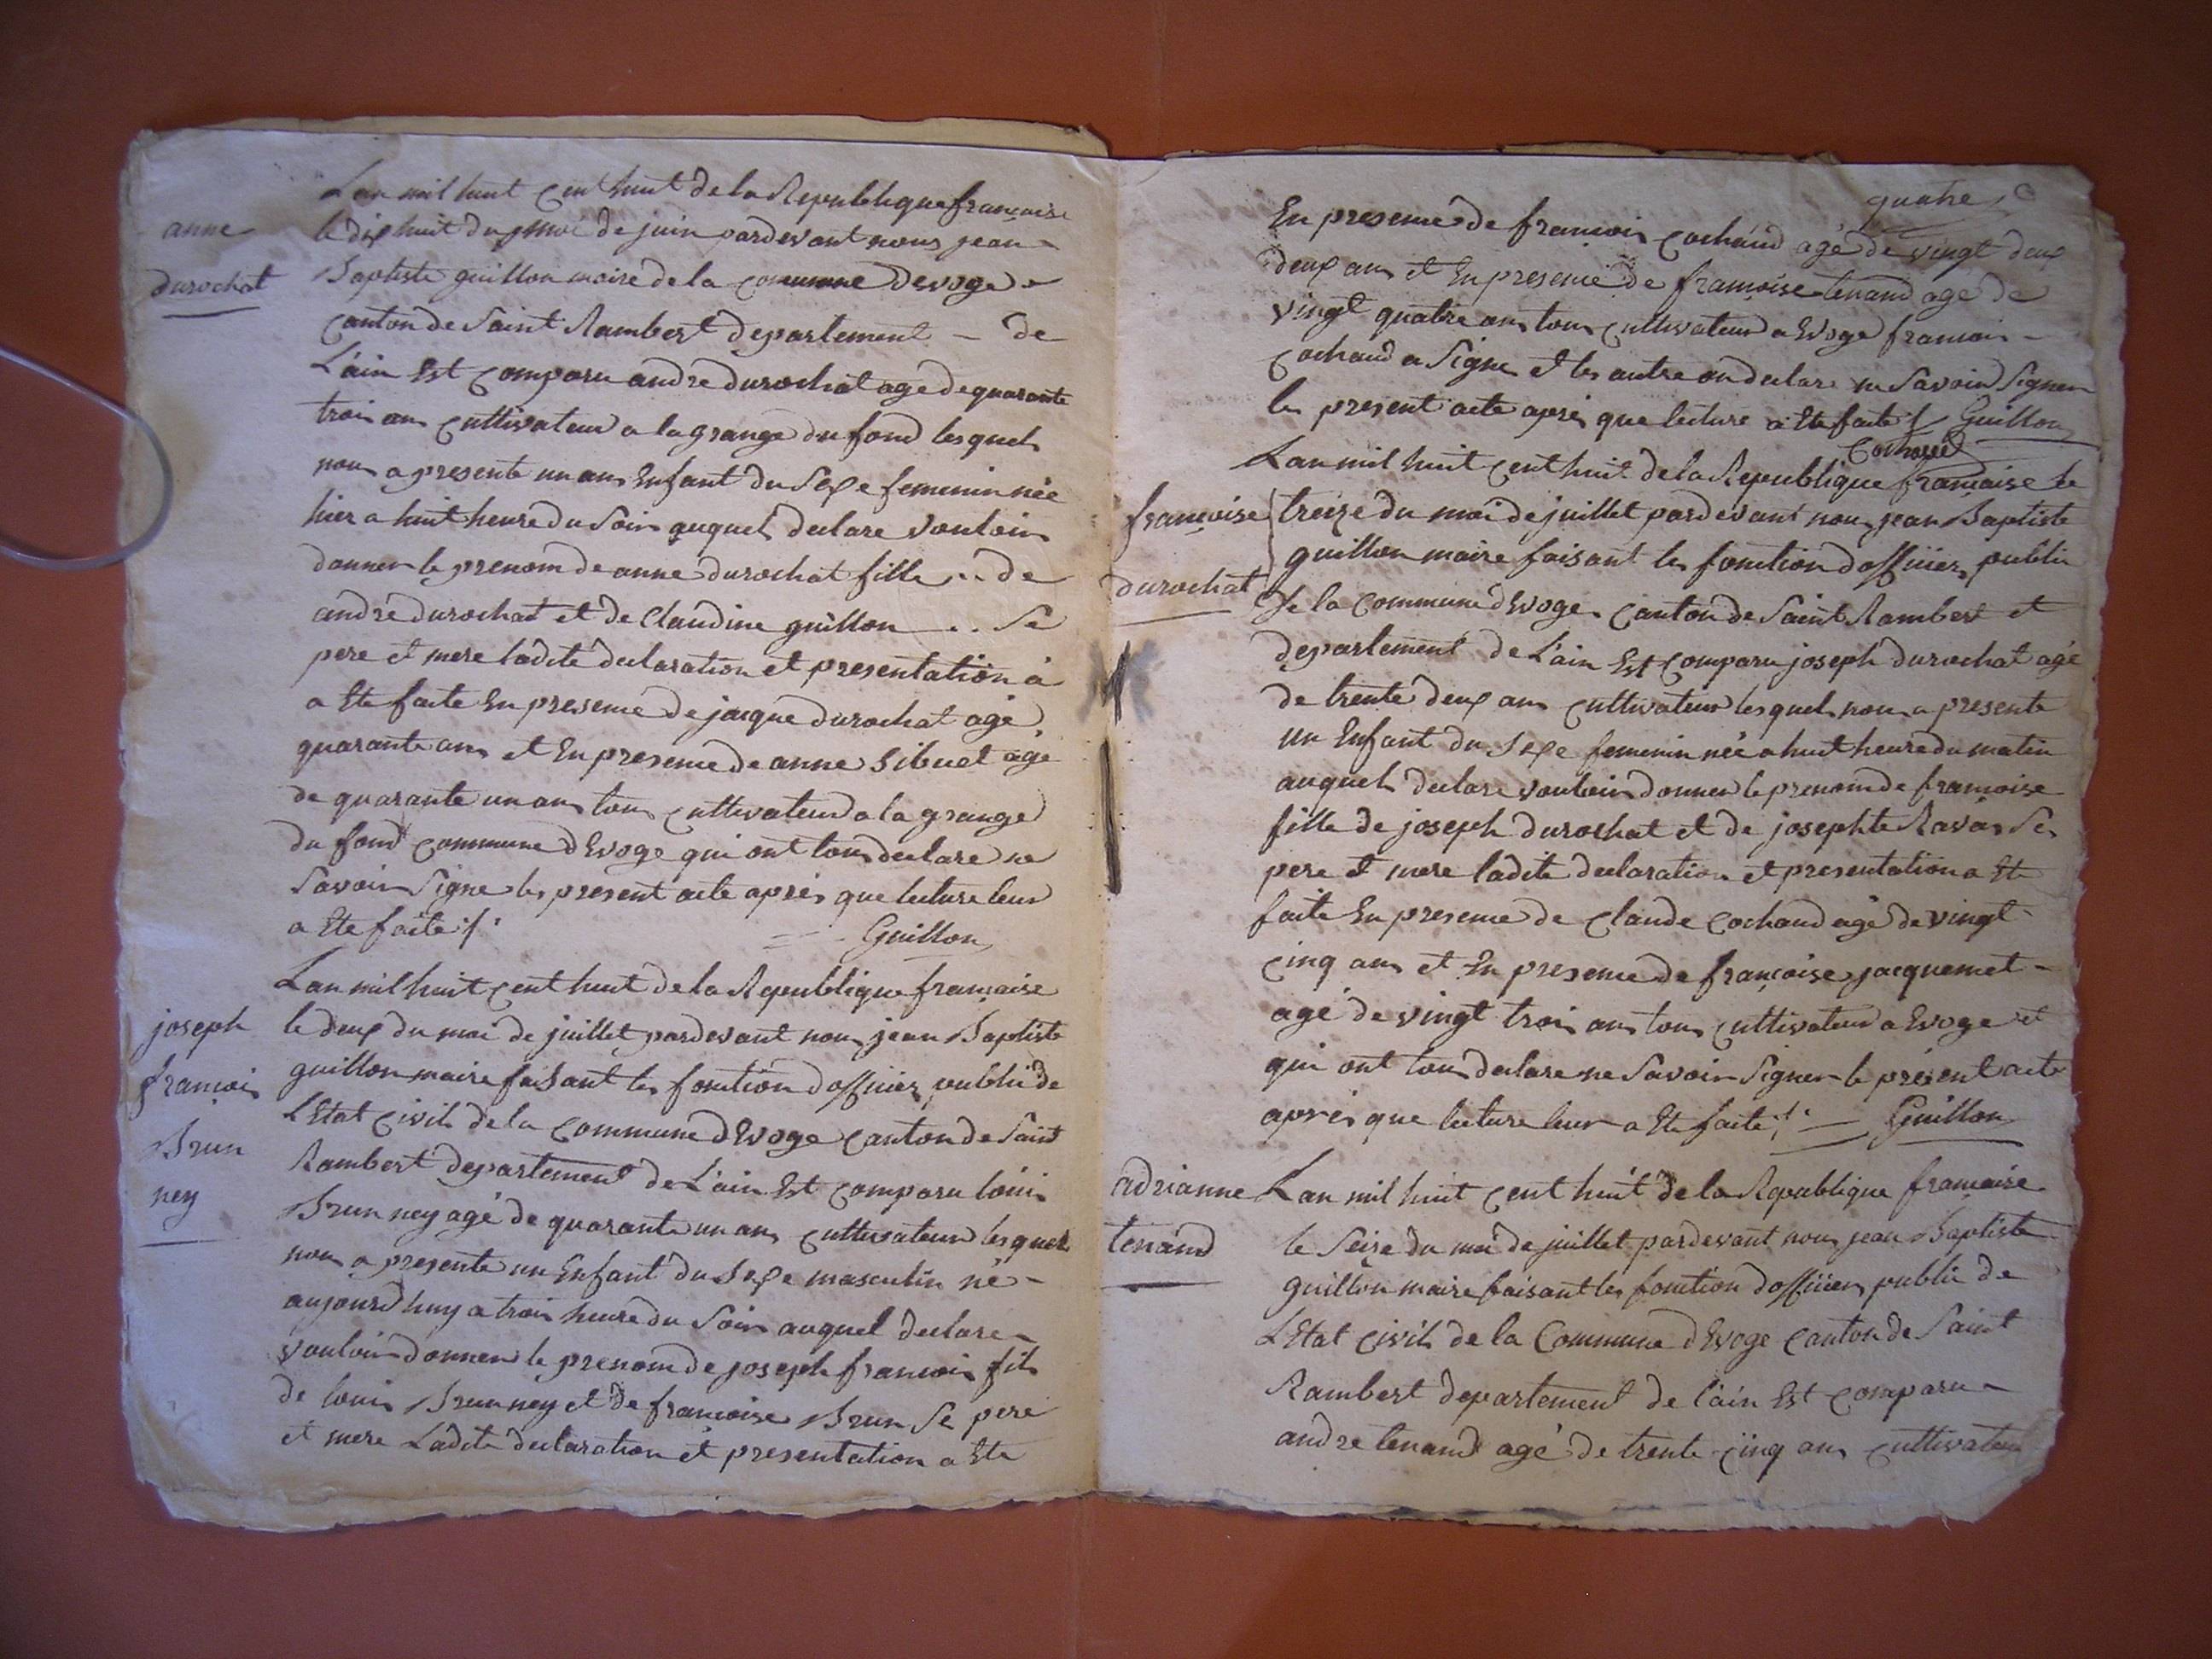 anne
durochat
Lan mil huit cent huit de la Republique francaise
le dix huit du moi de juin pardevant nous jean
Baptiste guillon maire de la commune devoge
canton de Saint Rambert departement - de
L'ain Est comparu andre durochat age de quarante
troi ans cultivateur a la grange du fond lesquel
nous a presente un ans Enfant du Sexe feminin née
hier a huit heure du Soir auquel declare vouloir
donner le prenom de anne durochat fille .. de
andré durochat et de Claudine guillon .. Se
pere et mere ladite declaration et presentation à
a Ete faite En presence de jacque durochat agé
quarante ans et En presence de anne Sibuet agé
de quarante un ans tous cultivateur a la grange
du fond commune d'Evoge qui ont tous declare ne
Savoir Signe les present acte aprés que lecture leur
a Ete faite ./. Guillon
joseph
francoi
Brun
ney
Lan mil huit cent huit de la Republique francaise
le deux du moi de juillet pardevant nous jean Baptiste
guillon maire faisant les fonction dofficier public de
LEtat Civil de la Commune dEvoge Canton de Saint
Rambert departement de L'ain Est comparu loui
Brun ney agé de quarante un ans cultivateur lesquel
nous a presente un Enfant du Sexe masculin né -
aujourdhuy a troi heure du Soir auquel declare
vouloir donner le prenom de joseph francoi fils
de loui Brun ney et de francoise Brun Se pere
et mere Ladite declaration et presentation a Ete
quatre
En presence de francoi cochand agé de vingt deux
deux ans et En presence de francoise tenand age de
vingt quatre ans tous cultivateur a Evoge francoi -
cochand a Signe et les autre on declare ne Savoir Signer
les present acte aprés que lecture a Ete faite ./. Guillon
Cochaud
francoise
durochat
Lan mil huit cent huit de la Republique francaise le
treize du moi de juillet pardevant nous jean Baptiste
guillon maire faisant les fonction dofficier public
de la Commune dEvoge Canton de Saint Rambert et
departement de L'ain Est comparu joseph durochat agé
de trente deux ans cultivateur lesquel nous a presente
un Enfant du Sexe feminin née a huit heure du matin
auquel declare vouloir donner le prenom de francoise
fille de joseph durochat et de josephte Ravá Se
pere et mere ladite declaration et presentation a Ete
faite En presence de Claude Cochand agé de vingt
cinq ans et En presence de francoise jacquemet -
agé de vingt troi ans tous cultivateur a Evoge et
qui ont tous declare ne Savoir Signer le présent acte
aprés que lecture leur a Ete faite ./. Guillon
adrianne
tenand
Lan mil huit cent huit de la Republique francaise
le Seize du moi de juillet pardevant nous jean Baptiste
guillon maire faisant les fonction dofficier public de
LEtat Civil de la Commune dEvoge Canton de Saint
Rambert departement de l'ain Est comparu -
andre tenand agé de trente cinq ans cultivateur